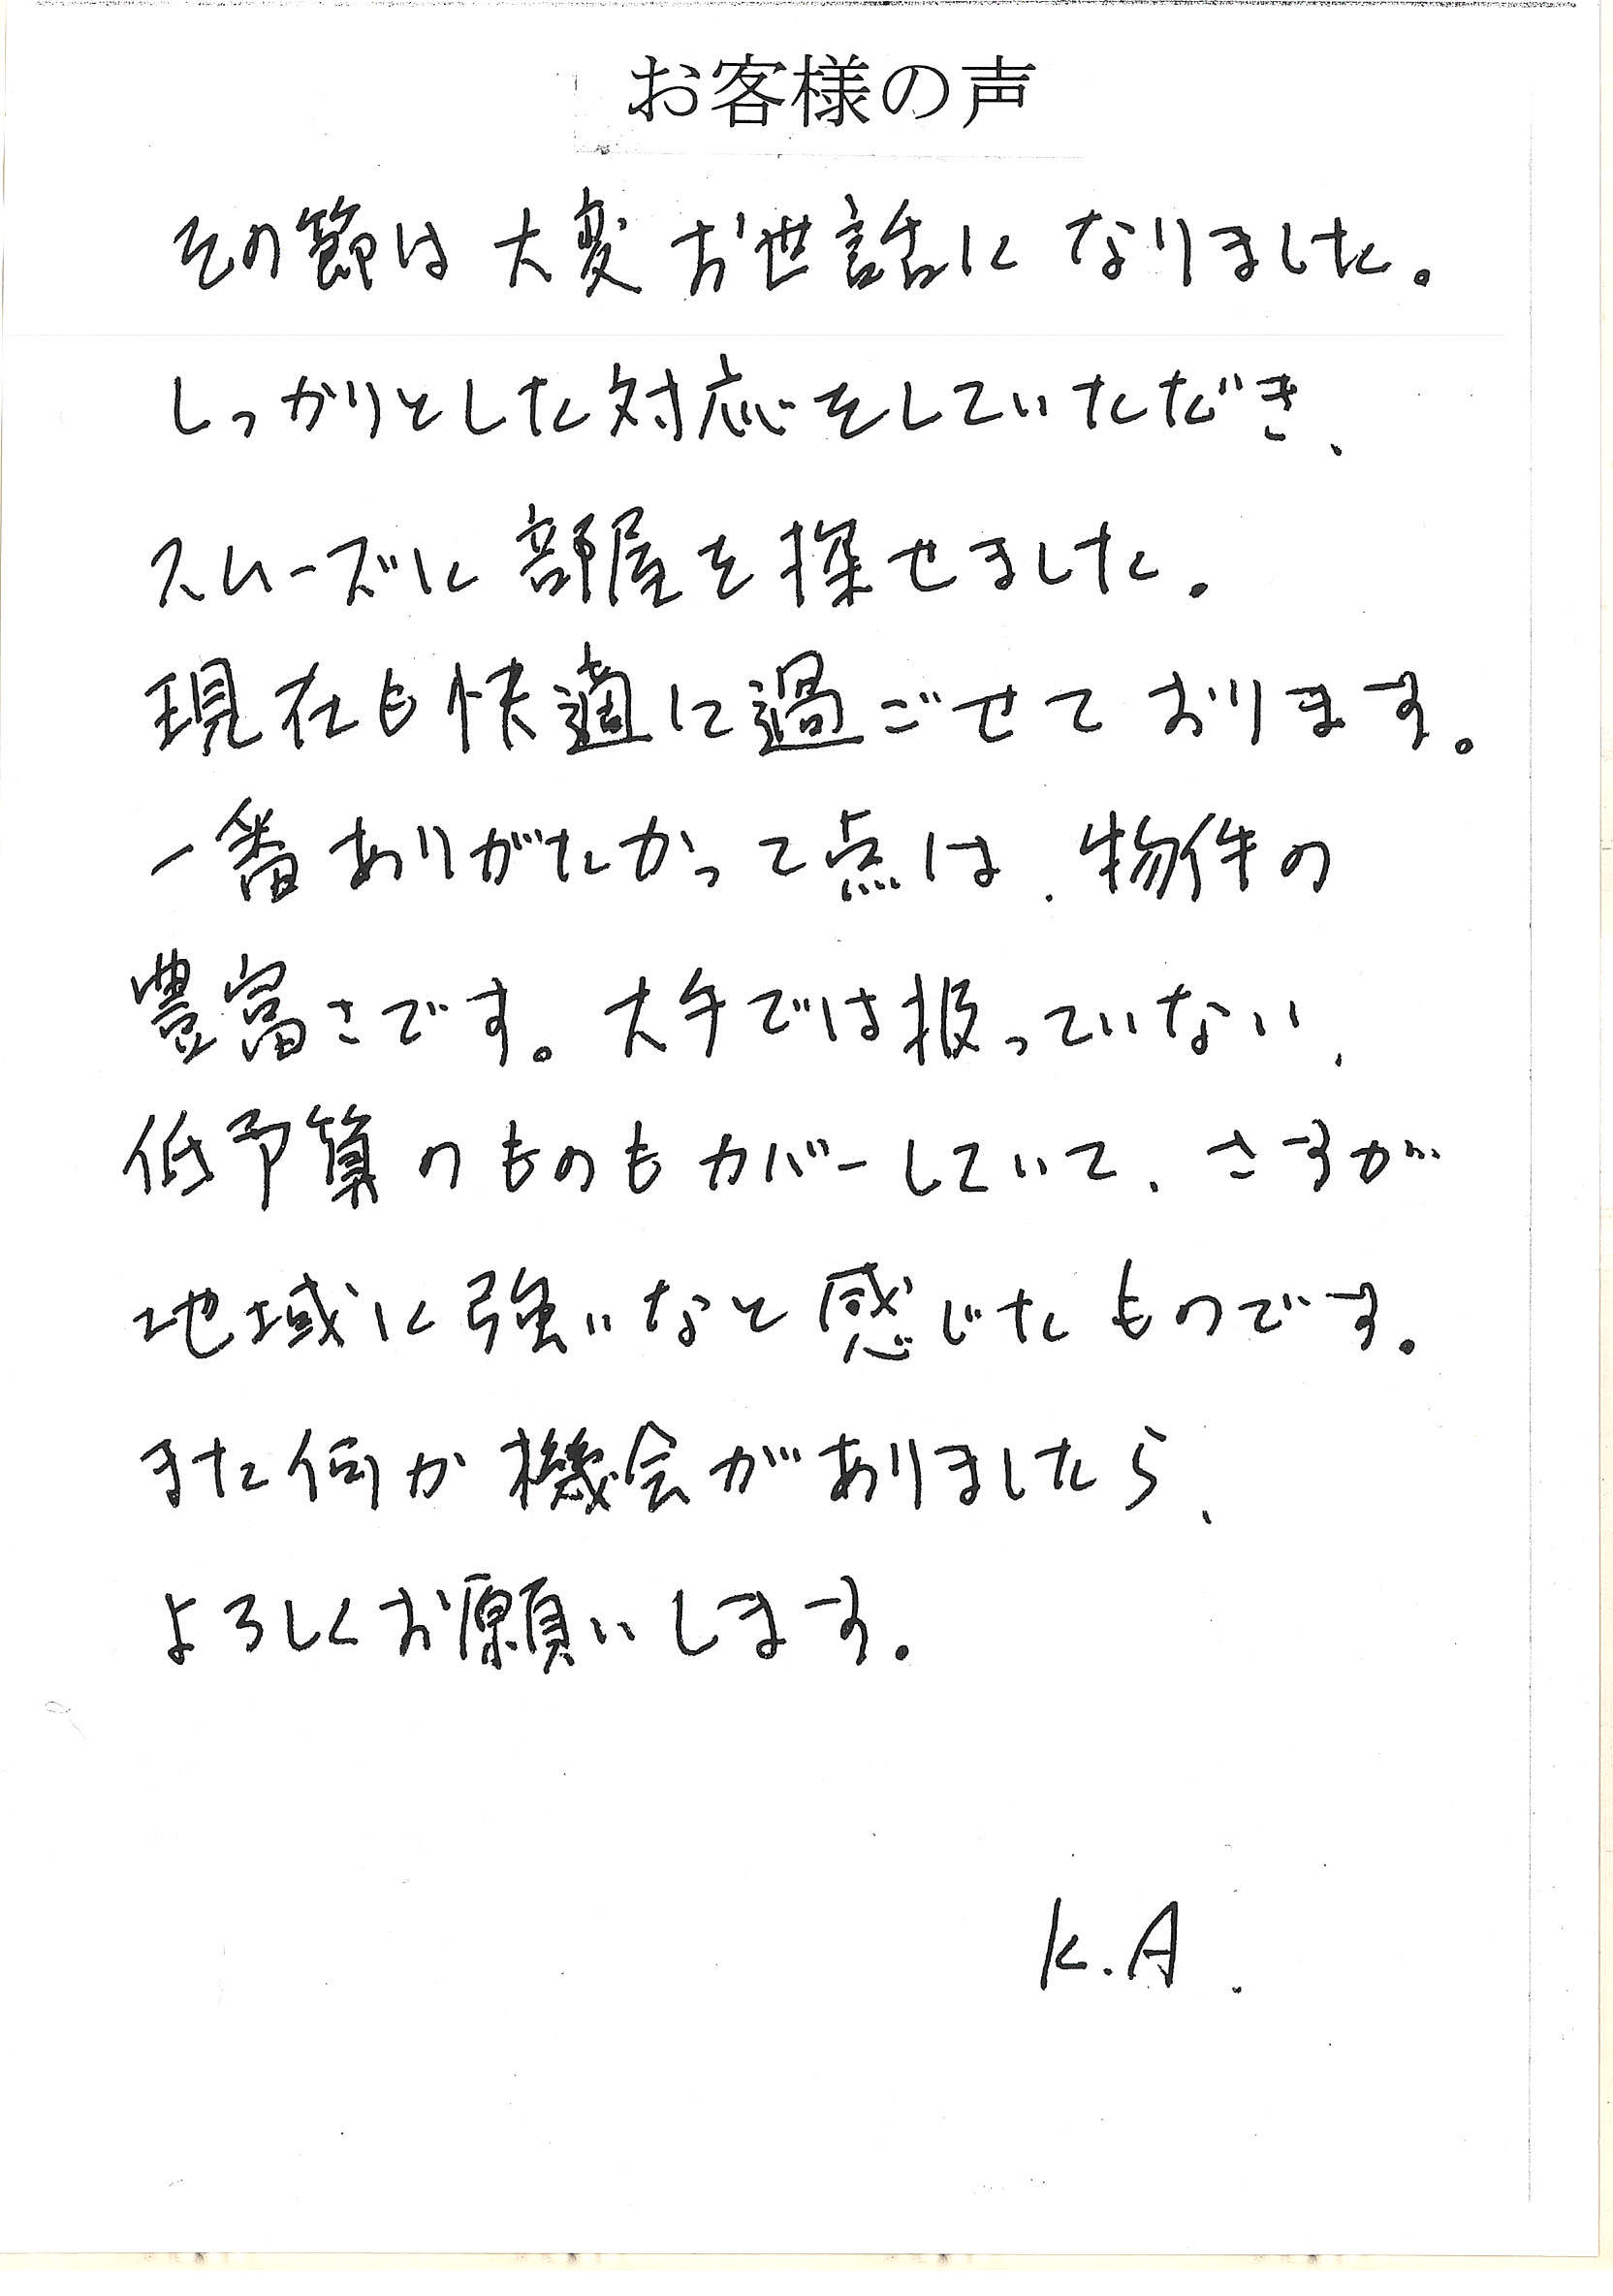 お客様の声
その節は大変お世話になりました。
しっかりとした対応をしていただき、
スムーズに部屋を探せました。
現在も快適に過ごせております。
一番ありがたかって点は、物件の
豊富さです。大手では扱っていない、
低予算のものもカバーしていて、さすが
地域に強いなと感じたものです。
また何か機会がありましたら、
よろしくお願いします。
K.A.